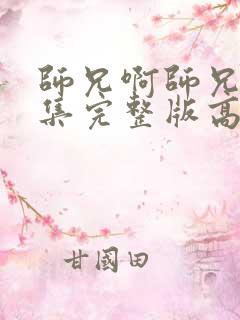 師兄啊師兄
集完整版高
甘國田